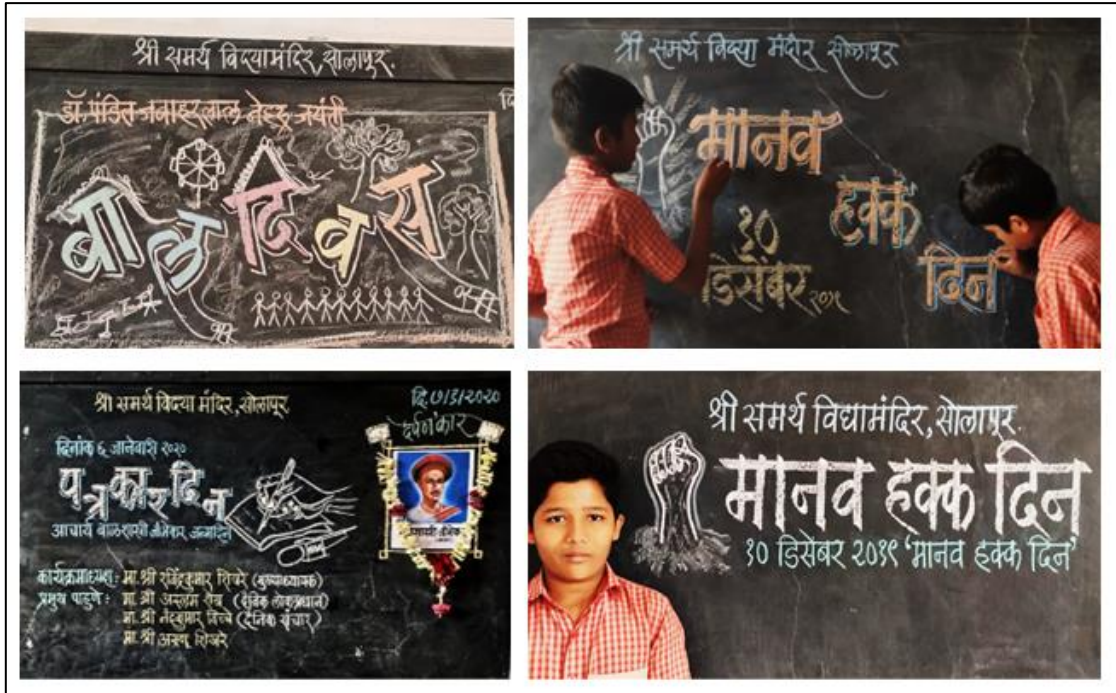 श्री समर्थ विद्यामंदिर, सोलापूर.
डॉ. पंडित जवाहरलाल नेहरू जयंती
बाल दिवस
श्री समर्थ विद्या मंदीर सोलापूर
मानव
हक्क
दिन
१०
डिसेंबर २०१९
श्री समर्थ विद्या मंदिर, सोलापूर
दि.७/१/२०२०
दर्पणकार
दिनांक ६ जानेवारी २०२०
पत्रकार दिन
आचार्य बाळशास्त्री जांभेकर जन्मदिन
कार्यक्रमाध्यक्ष: मा. श्री रविंद्रकुमार शिखरे (मुख्याध्यापक)
प्रमुख पाहुणे: मा. श्री अस्लम शेख (दैनिक लोकप्रधान)
मा. श्री नंदकुमार (दैनिक संचार)
मा. श्री शिखरे
श्री समर्थ विद्यामंदिर, सोलापूर.
मानव हक्क दिन
१० डिसेंबर २०१९ 'मानव हक्क दिन'